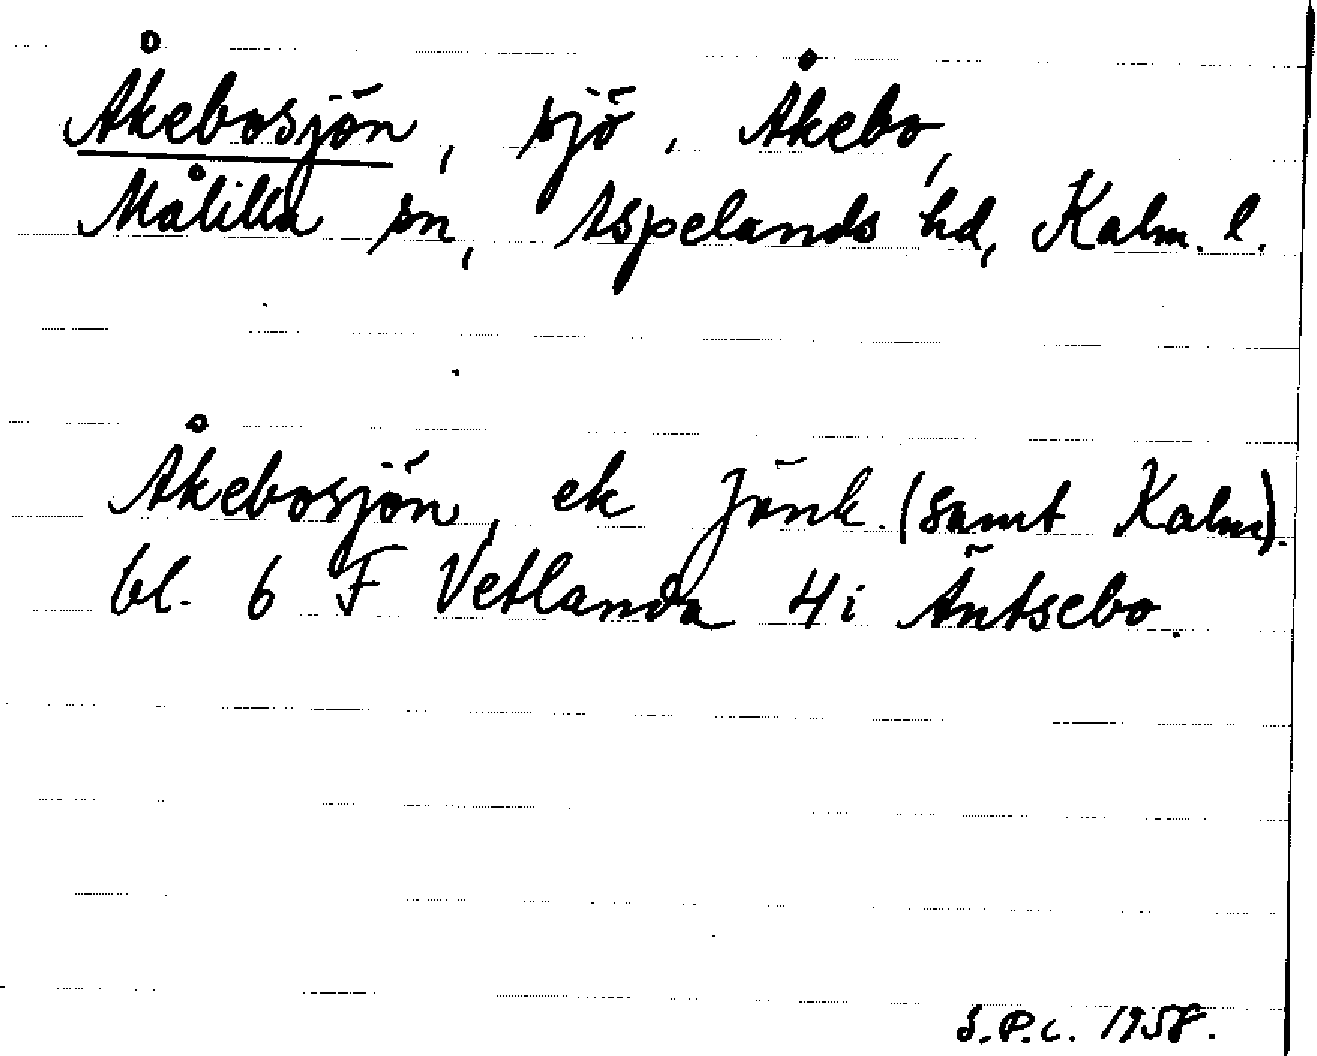 Åkebosjön, sjö, Åkebo,
Målilla sn, Aspelands hd, Kalm. l.
Åkebosjön, ek Jönk. (samt Kalm).
bl. 6 F Vetlanda 4i Äntsebo.
S.P.C. 1958.